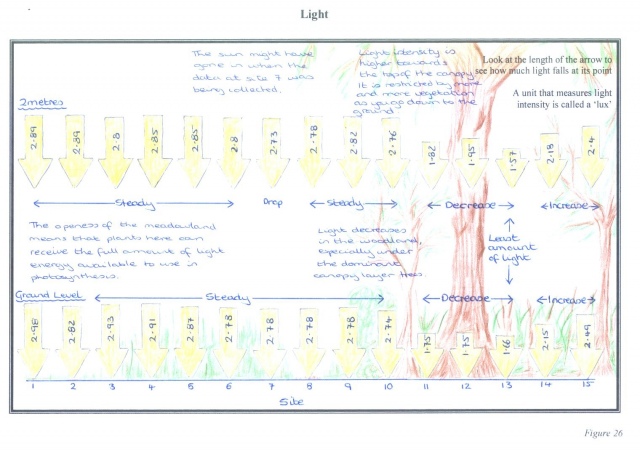 Light
The sun might have
gone in when the
data at site 7 was
being collected.
Light intensity is
higher towards
the top of the canopy
It is restricted by more
and more vegetation
as you go down to the
ground
Look at the length of the arrow to
see how much light falls at its point
A unit that measures light
intensity is called a 'lux'
2metres
2.89 2.89 2.8 2.85 2.85 2.8 2.73 2.78 2.82 2.76 1.82 1.95 1.57 2.18 2.4
Steady Drop Steady Decrease Increase
The openess of the meadowland
means that plants here can
receive the full amount of light
energy available to use in
photosynthesis.
Light decreases
in the woodland,
especially under
the dominant
canopy layer trees.
Least
amount
of light
Ground Level
Steady Decrease Increase
2.98 2.82 2.93 2.91 2.87 2.78 2.78 2.78 2.78 2.74 1.75 1.75 1.16 2.15 2.49
1 2 3 4 5 6 7 8 9 10 11 12 13 14 15
Site
Figure 26